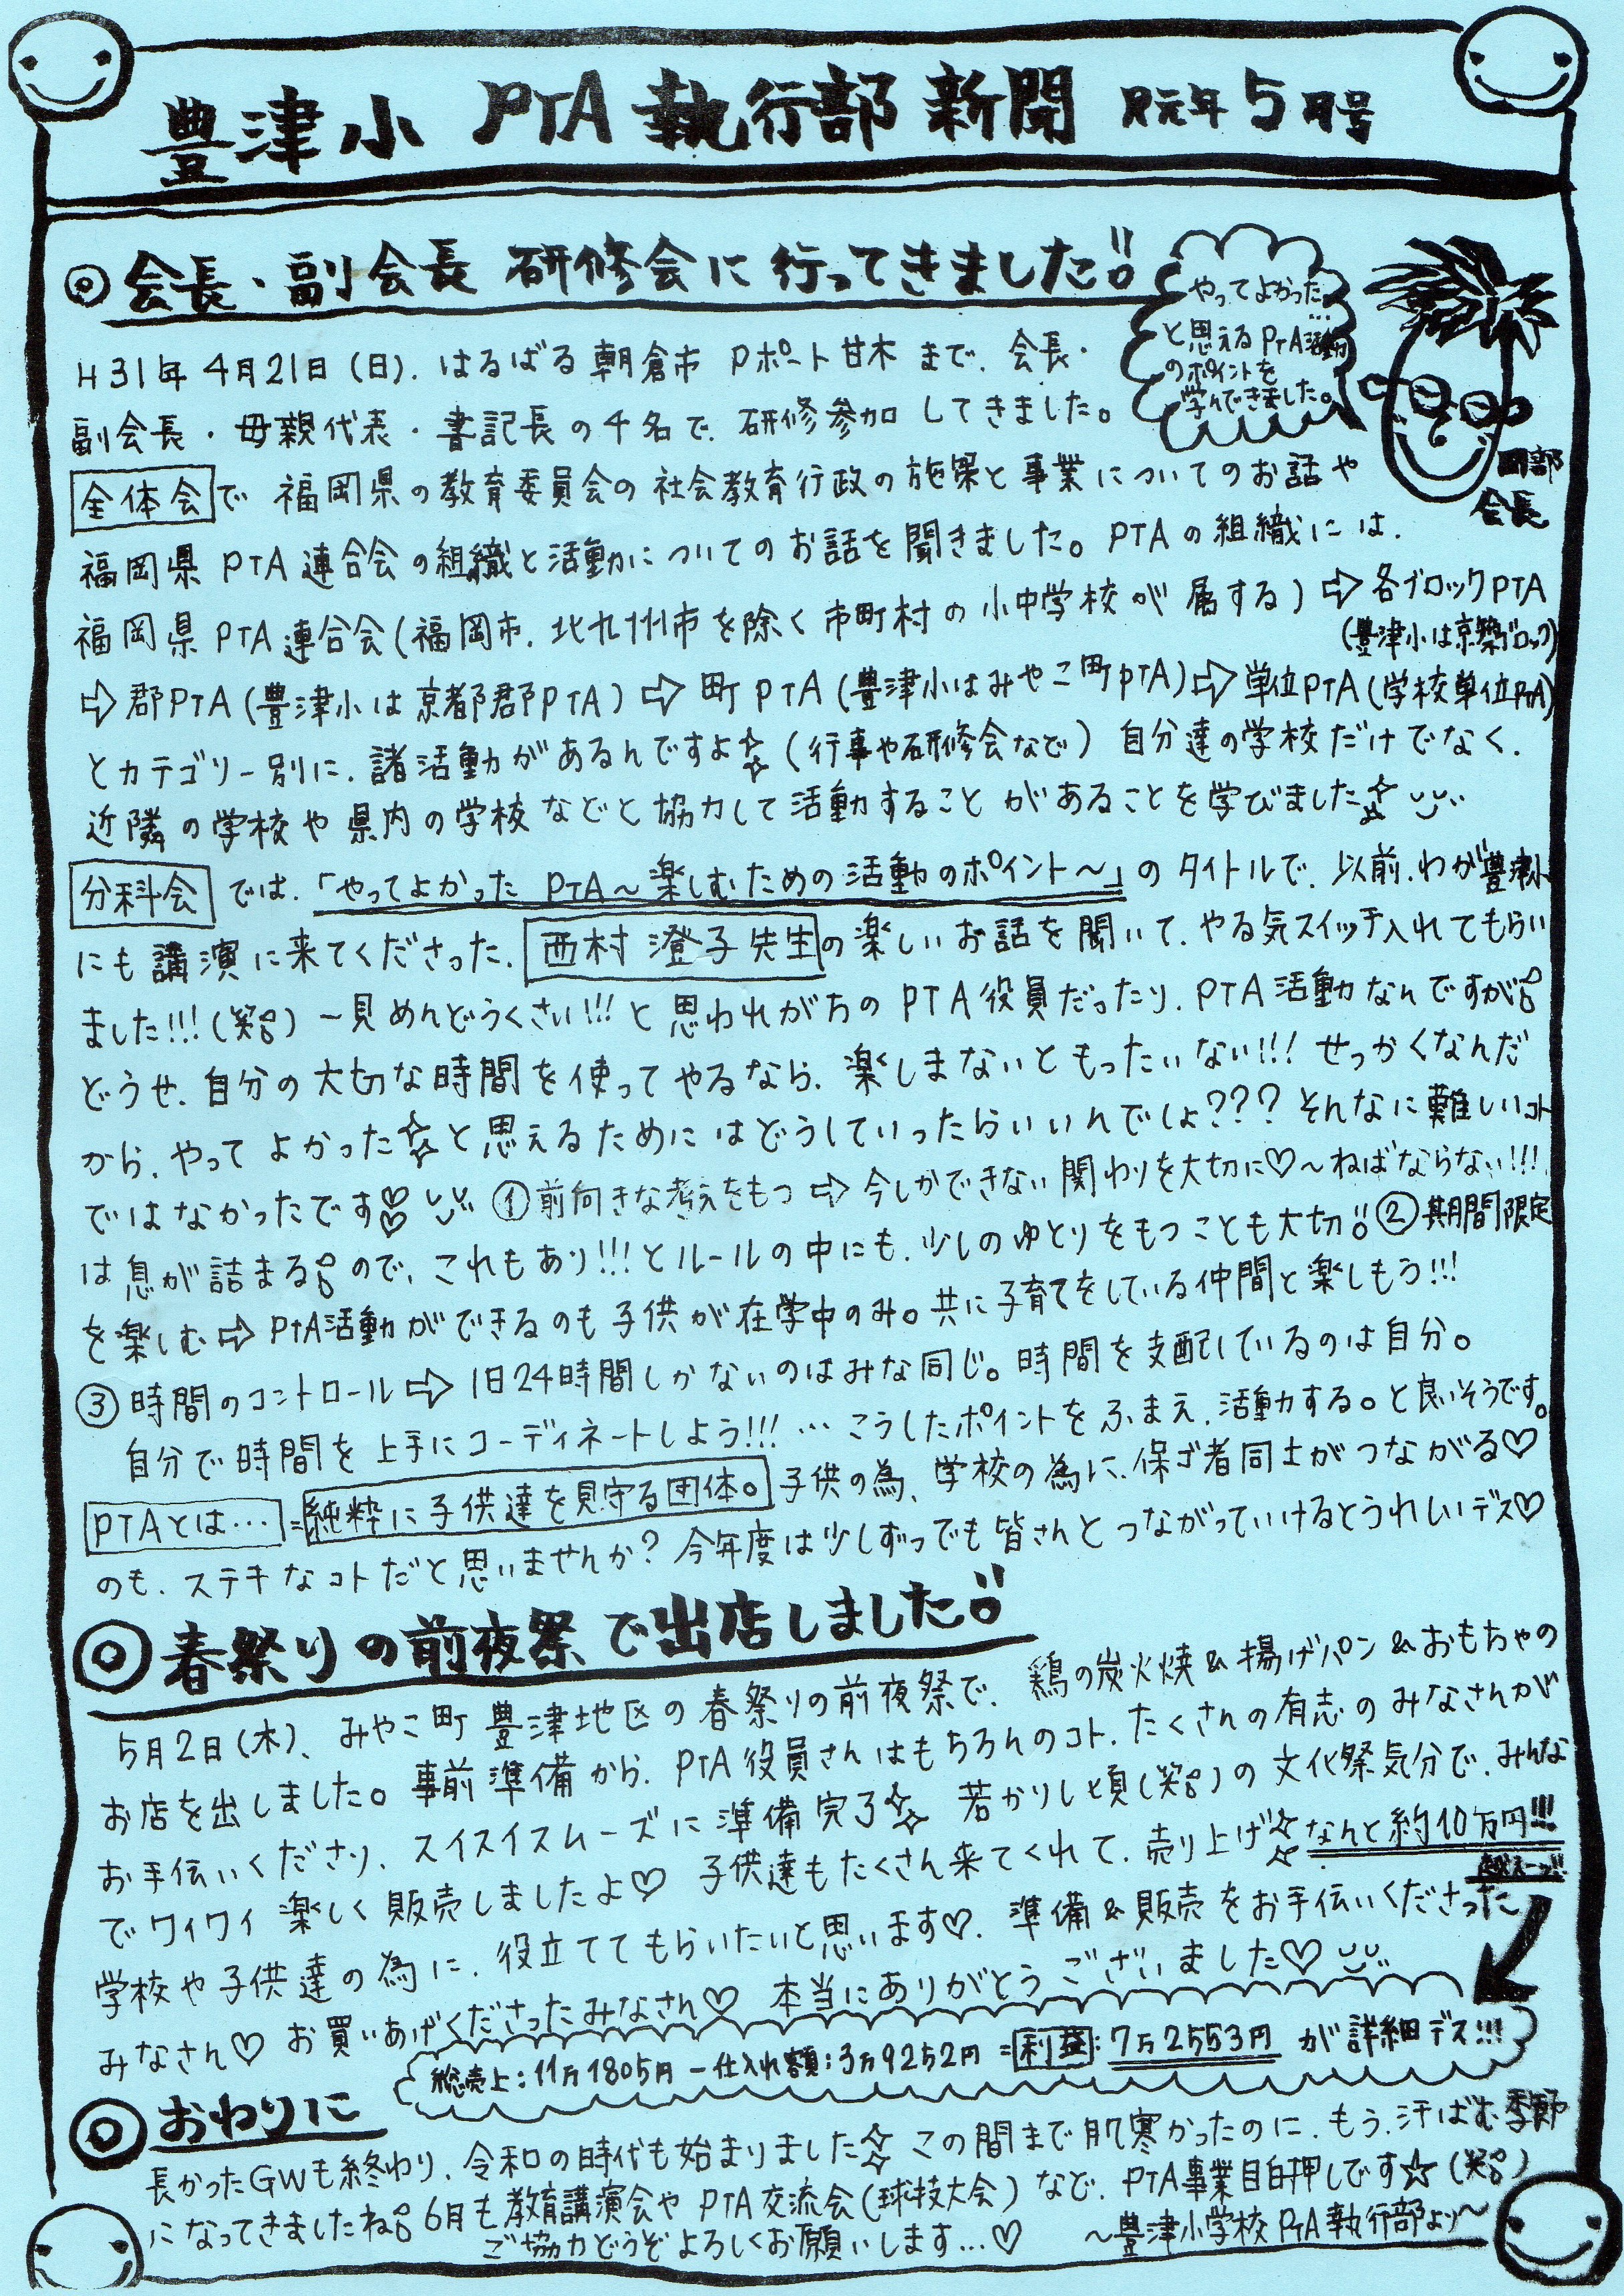 豊津小 PTA 執行部 新聞 R元年 5月号
◎会長・副会長 研修会に行ってきました!!
やってよかった…
と思えるPTA活動
のポイントを
学んできました。
岡部
会長
H31年 4月21日(日)、はるばる朝倉市 Pポート甘木 まで、会長・
副会長・母親代表・書記長の4名で、研修参加してきました。
全体会で 福岡県の教育委員会の社会教育行政の施策と事業についてのお話や
福岡県PTA連合会の組織と活動についてのお話を聞きました。PTAの組織には、
福岡県PTA連合会(福岡市、北九州市を除く市町村の小中学校が属する)⇨各ブロックPTA
(豊津小は京築ブロック)
⇨郡PTA(豊津小は京都郡PTA)⇨町PTA(豊津小はみやこ町PTA)⇨単位PTA(学校単位PTA)
とカテゴリー別に、諸活動があるんですよ☆(行事や研修会など)自分達の学校だけでなく、
近隣の学校や県内の学校などと協力して活動することがあることを学びました☆
分科会では、「やってよかった PTA〜楽しむための活動のポイント〜」のタイトルで、以前、わが豊津小
にも講演に来てくださった、西村 澄子先生の楽しいお話を聞いて、やる気スイッチ入れてもらい
ました!!!(笑) 一見めんどうくさい!!!と思われがちのPTA役員だったり、PTA活動なんですが
どうせ、自分の大切な時間を使ってやるなら、楽しまないともったいない!!!せっかくなんだ
から、やってよかった☆と思えるためにはどうしていったらいいんでしょ???そんなに難しいコト
ではなかったです♡ ①前向きな考えをもつ⇨今しかできない関わりを大切に♡〜ねばならない!!!
は息が詰まるので、これもあり!!!とルールの中にも、少しのゆとりをもつことも大切!! ②期間限定
を楽しむ⇨PTA活動ができるのも子供が在学中のみ。共に子育てをしている仲間と楽しもう!!!
③時間のコントロール⇨1日24時間しかないのはみな同じ。時間を支配しているのは自分。
自分で時間を上手にコーディネートしよう!!!…こうしたポイントをふまえ、活動する。と良いそうです。
PTAとは…=純粋に子供達を見守る団体。子供の為、学校の為に、保ゴ者同士がつながる♡
のも、ステキなコトだと思いませんか?今年度は少しずつでも皆さんとつながっていけるとうれしいデス♡
◎春祭りの前夜祭で出店しました!!
5月2日(木)、みやこ町豊津地区の春祭りの前夜祭で、鶏の炭火焼&揚げパン&おもちゃの
お店を出しました。事前準備から、PTA役員さんはもちろんのコト、たくさんの有志のみなさんが
お手伝いくださり、スイスイスムーズに準備完了☆ 若かりし頃(笑)の文化祭気分で、みんな
でワイワイ楽しく販売しましたよ♡ 子供達もたくさん来てくれて、売り上げ☆なんと約10万円!!!
学校や子供達の為に、役立ててもらいたいと思います♡、準備&販売をお手伝いくださった
みなさん♡ お買いあげくださったみなさん♡ 本当にありがとうございました♡
総売上:11万1805円 ー仕入れ額:3万9252円=利益:7万2553円 が詳細デス!!!
◎おわりに
長かったGWも終わり、令和の時代も始まりました☆ この間まで肌寒かったのに、もう、汗ばむ季節
になってきましたね 6月も教育講演会やPTA交流会(球技大会)など、PTA事業目白押しです☆(笑)
ご協力どうぞよろしくお願いします…♡ 〜豊津小学校PTA執行部より〜